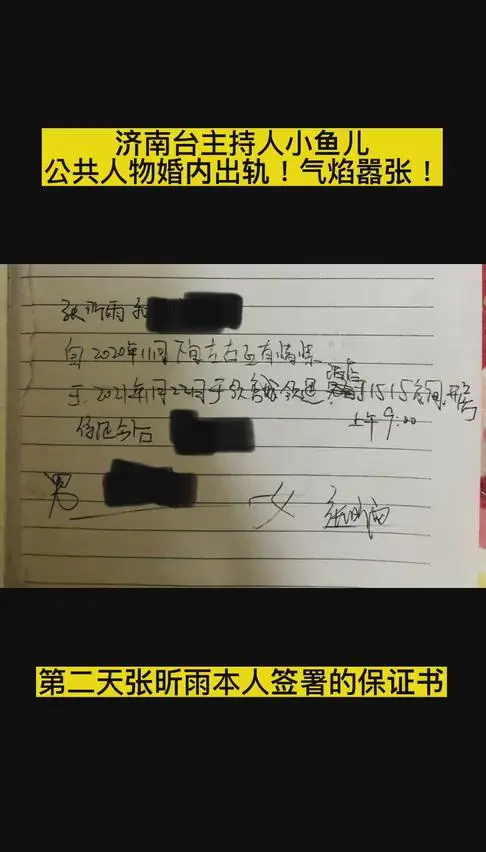 济南台主持人小鱼儿
公共人物婚内出轨！气焰嚣张！
张昕雨和
自2020年11月下旬左右至有情
于2021年1月22日于 酒店1515房间开房
上午9:00
保证今后
男
女 张昕雨
第二天张昕雨本人签署的保证书